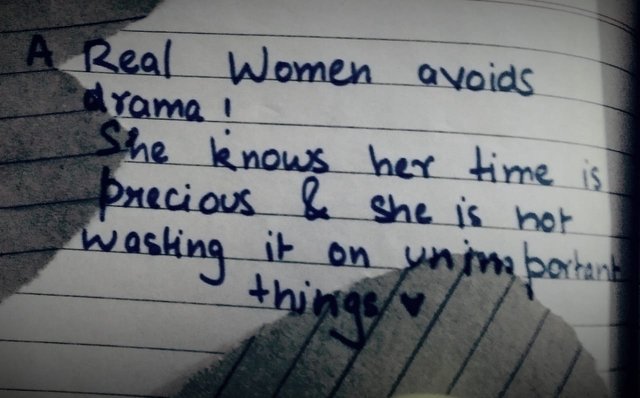 A Real Women avoids
drama!
She knows her time is
precious & she is not
wasting it on unimportant
things ♥